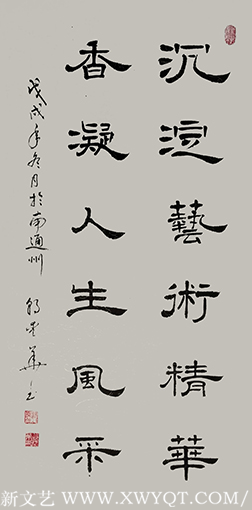 沉淀藝術精華
香凝人生風采
戊戌年冬月於南通州
新文艺 WWW.XWYQT.COM